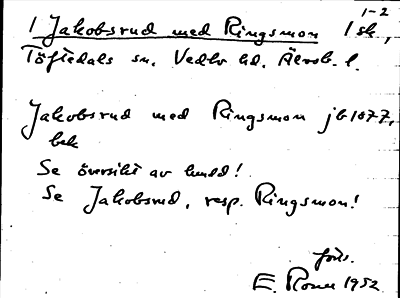 1-2
1 Jakobsrud med Ringsmon 1 sk,
Töftedals sn. Vedbo hd. Älvsb. l.
Jakobsrud med Ringsmon jb 1877,
bek
Se översikt av hmd!
Se Jakobsrud, resp. Ringsmon!
förs.
E. 1952